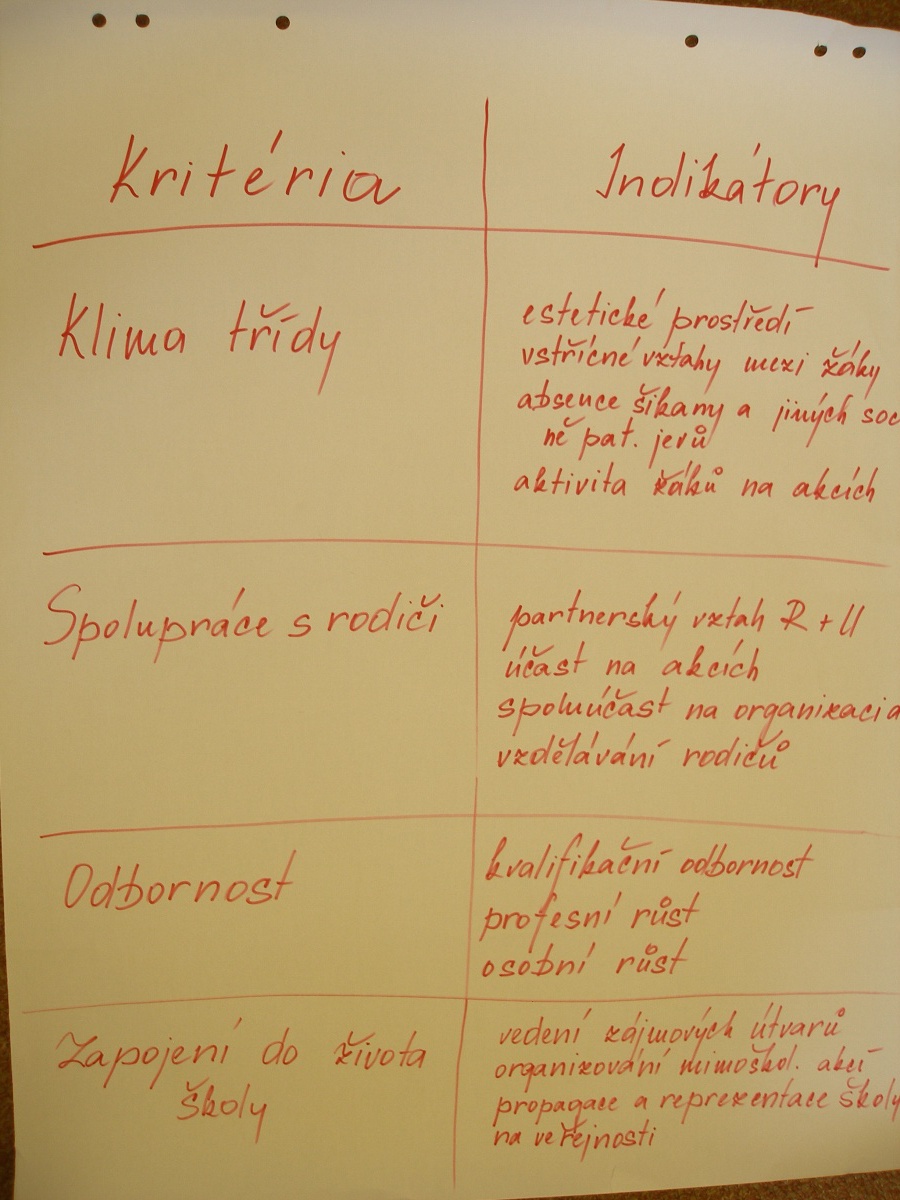 Kritéria
Indikátory
Klima třídy
estetické prostředí
vstřícné vztahy mezi žáky
absence šikany a jiných soc
ně pat. jevů
aktivita žáků na akcích
Spolupráce s rodiči
partnerský vztah R + U
účast na akcích
spoluúčast na organizaci a
vzdělávání rodičů
Odbornost
kvalifikační odbornost
profesní růst
osobní růst
Zapojení do života
školy
vedení zájmových útvarů
organizování mimoškol. akcí
propagace a reprezentace školy
na veřejnosti